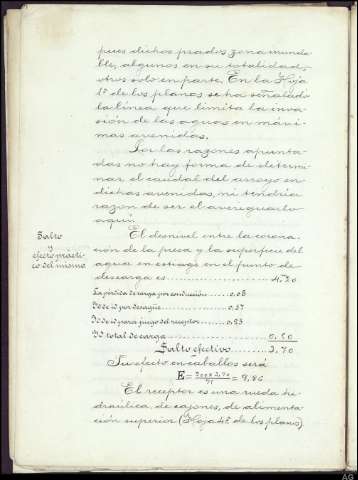 pues dichos prados zona inunda-
ble, algunos en su totalidad,
otros solo en parte. En la Hoja
1ª de los planos se ha señalado
la línea que limita la inva-
sión de las aguas en máxi-
mas avenidas.
Por las razones apunta-
das no hay forma de determi-
nar el caudal del arroyo en
dichas avenidas, ni tendría
razon de ser el averiguarlo
aquí.
Salto
y
efecto practi-
co del mismo
El desnivel entre la corona-
ción de la presa y la superficie del
agua en estiage en el punto de
descarga es
La pérdida de carga por conducción ..... 0.05
Id de id por desagüe ..... 0.27
Id de id para juego del receptor ..... 0.23
Id total de carga
Salto efectivo ..... 3.70
Su efecto en caballos será
E = = 9,86
El receptor es una rueda hi-
dráulica, de cajones, de alimenta-
ción superior (Hoja 4ª de los planos)
AG